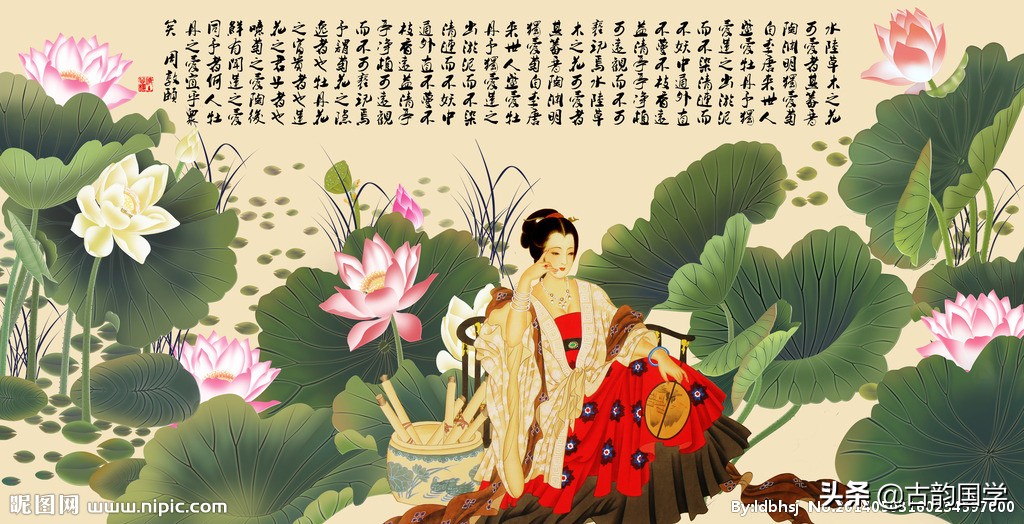 水陸草木之花
可愛者甚蕃晉
陶淵明獨愛菊
自李唐來世人
盛愛牡丹予獨
愛蓮之出淤泥
而不染清漣而
不妖中通外直
不蔓不枝香遠
益清亭亭淨植
可遠觀而不可
褻玩焉水陸草
木之花可愛者
甚蕃晉陶淵明
獨愛菊自李唐
來世人盛愛牡
丹予獨愛蓮之
出淤泥而不染
清漣而不妖中
通外直不蔓不
枝香遠益清亭
亭淨植可遠觀
而不可褻玩焉
予謂菊花之隱
逸者也牡丹花
之富貴者也蓮
花之君子者也
噫菊之愛陶後
鮮有聞蓮之愛
同予者何人牡
丹之愛宜乎眾
矣 周敦頤
昵图网 www.nipic.com
By:ldbhsj
头条 @古韵国学